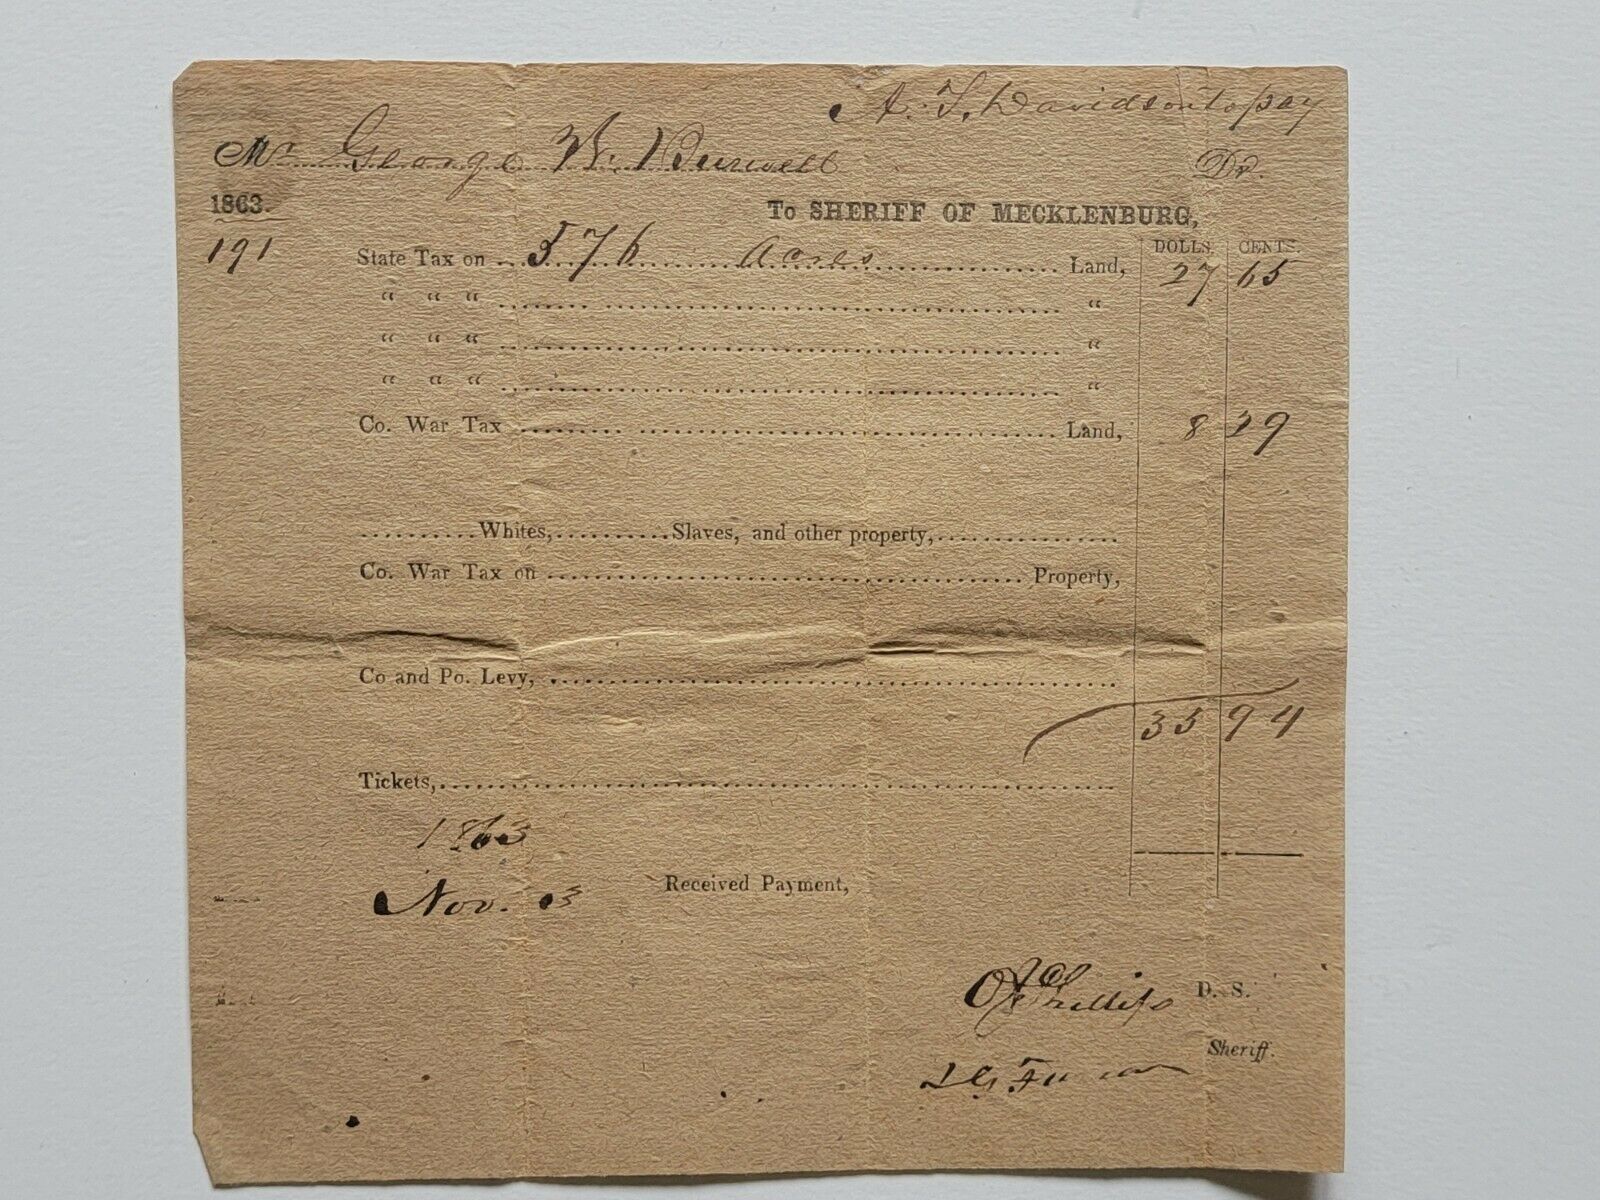 A. T. Davidson to pay
Mr George W. Burwell Dr.
1863. To SHERIFF OF MECKLENBURG,
DOLLS. CENTS.
191 State Tax on 576 Acres Land, 27 65
" " " "
" " " "
" " " "
Co. War Tax Land, 8 29
Whites, Slaves, and other property,
Co. War Tax on Property,
Co and Po. Levy,
35 94
Tickets,
1863
Nov. 3 Received Payment,
Phillips D. S.
Sheriff.